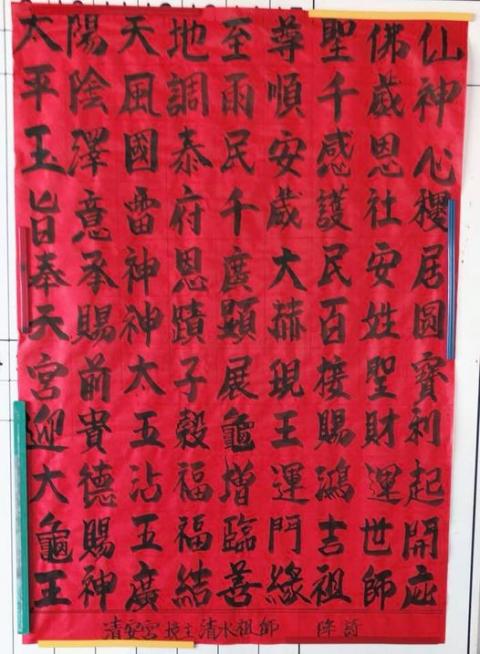 太陽天地至尊聖佛仙
平陰風調雨順千歲神
玉澤國泰民安感恩心
旨意雷府千歲護社稷
奉承神恩廣大民安居
天賜神蹟顯赫百姓圓
宮前太子展現接聖寶
迎貴五穀龜王賜財利
大德沾福增運鴻運起
龜賜五福臨門吉世開
王神廣結善緣祖師庇
清安宮 主清水祖師 降詩